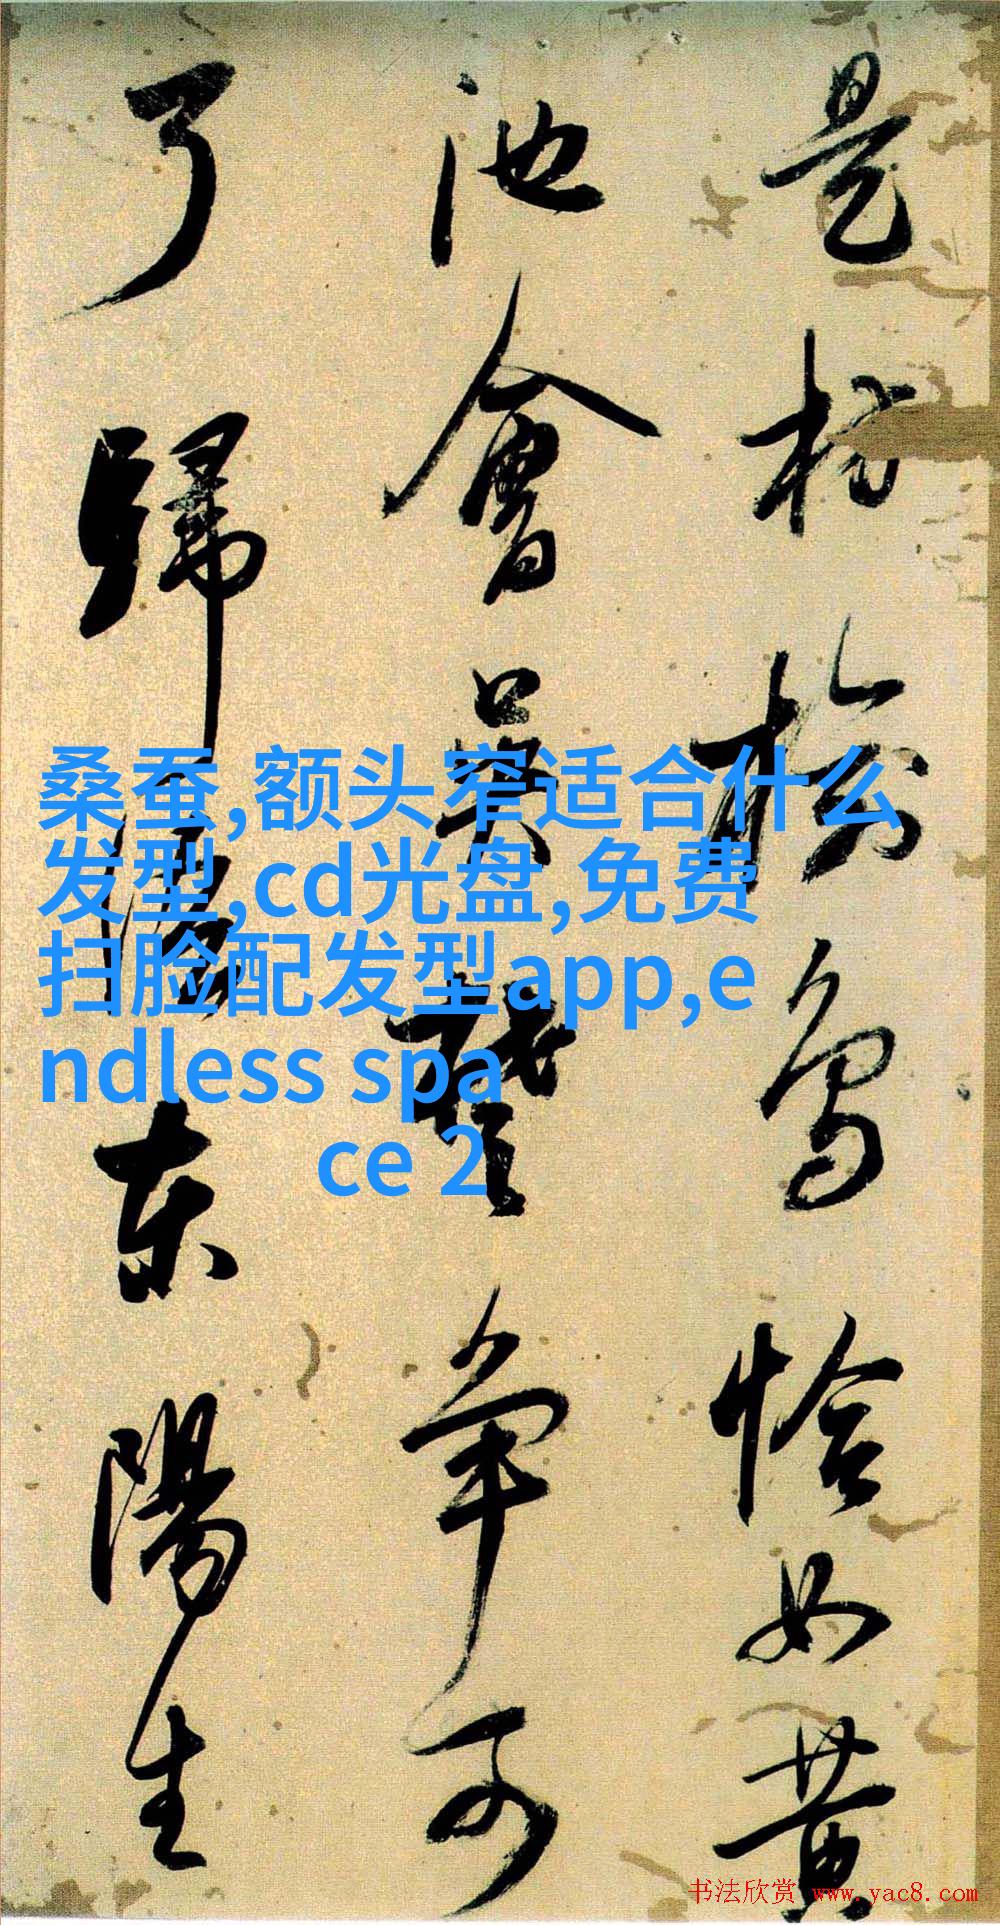 是枋榆鳥恰如黄
池會吴争可
了歸東陽生
桑蚕,额头窄适合什么
发型,cd光盘,免费
扫脸配发型app,e
ndless spa
ce 2
书法欣赏 www.yac8.com